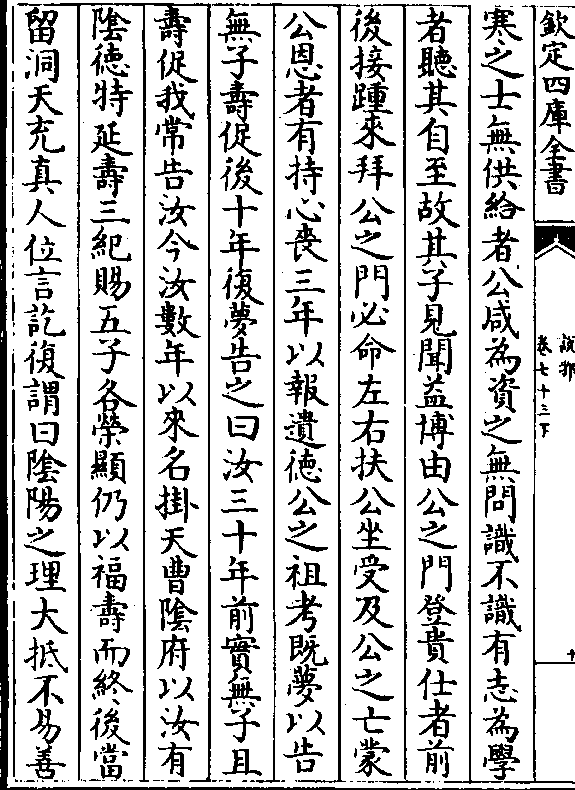 欽定四庫全書
說郛
卷七十三下
十
寒之士無供給者公咸為資之無問識不識有志為學
者聽其自至故其子見聞益博由公之門登貴仕者前
後接踵來拜公之門必命左右扶公坐受及公之亡蒙
公恩者有持心喪三年以報遺徳公之祖考既夢以告
無子壽促後十年復夢告之曰汝三十年前實無子且
壽促我常告汝今汝數年以來名掛天曹陰府以汝有
陰徳特延壽三紀賜五子各榮顯仍以福壽而終後當
留洞天充真人位言訖復謂曰陰陽之理大抵不易善